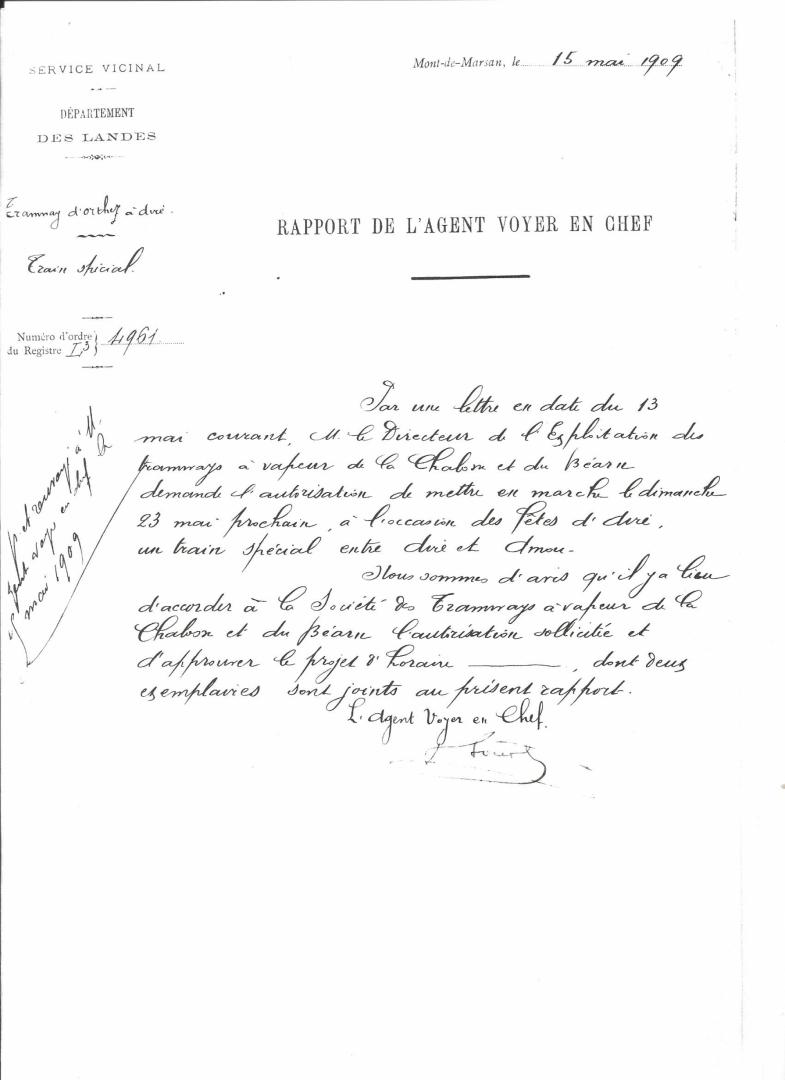 SERVICE VICINAL
DÉPARTEMENT
DES LANDES
Mont-de-Marsan, le 15 mai 1909
Tramway d'Orthez à Aire.
Train spécial.
RAPPORT DE L'AGENT VOYER EN CHEF
Numéro d'ordre
du Registre I,3 } 4961
Par une lettre en date du 13
mai courant, M. le Directeur de l'Exploitation des
tramways à vapeur de la Chalosse et du Béarn
demande l'autorisation de mettre en marche le dimanche
23 mai prochain, à l'occasion des fêtes d'Aire,
un train spécial entre Aire et Amou.
Nous sommes d'avis qu'il y a lieu
d'accorder à la Société des Tramways à vapeur de la
Chalosse et du Béarn l'autorisation sollicitée et
d'approuver le projet d'horaire ———, dont deux
exemplaires sont joints au présent rapport.
L'Agent Voyer en Chef.
et renvoyé à M.
agent voyer en chef
mai 1909